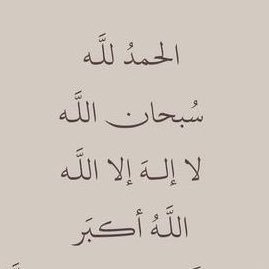 الحمدُ للَّه
سُبحان اللَّه
لا إلـهَ إلا اللَّه
اللَّهُ أكـبَر